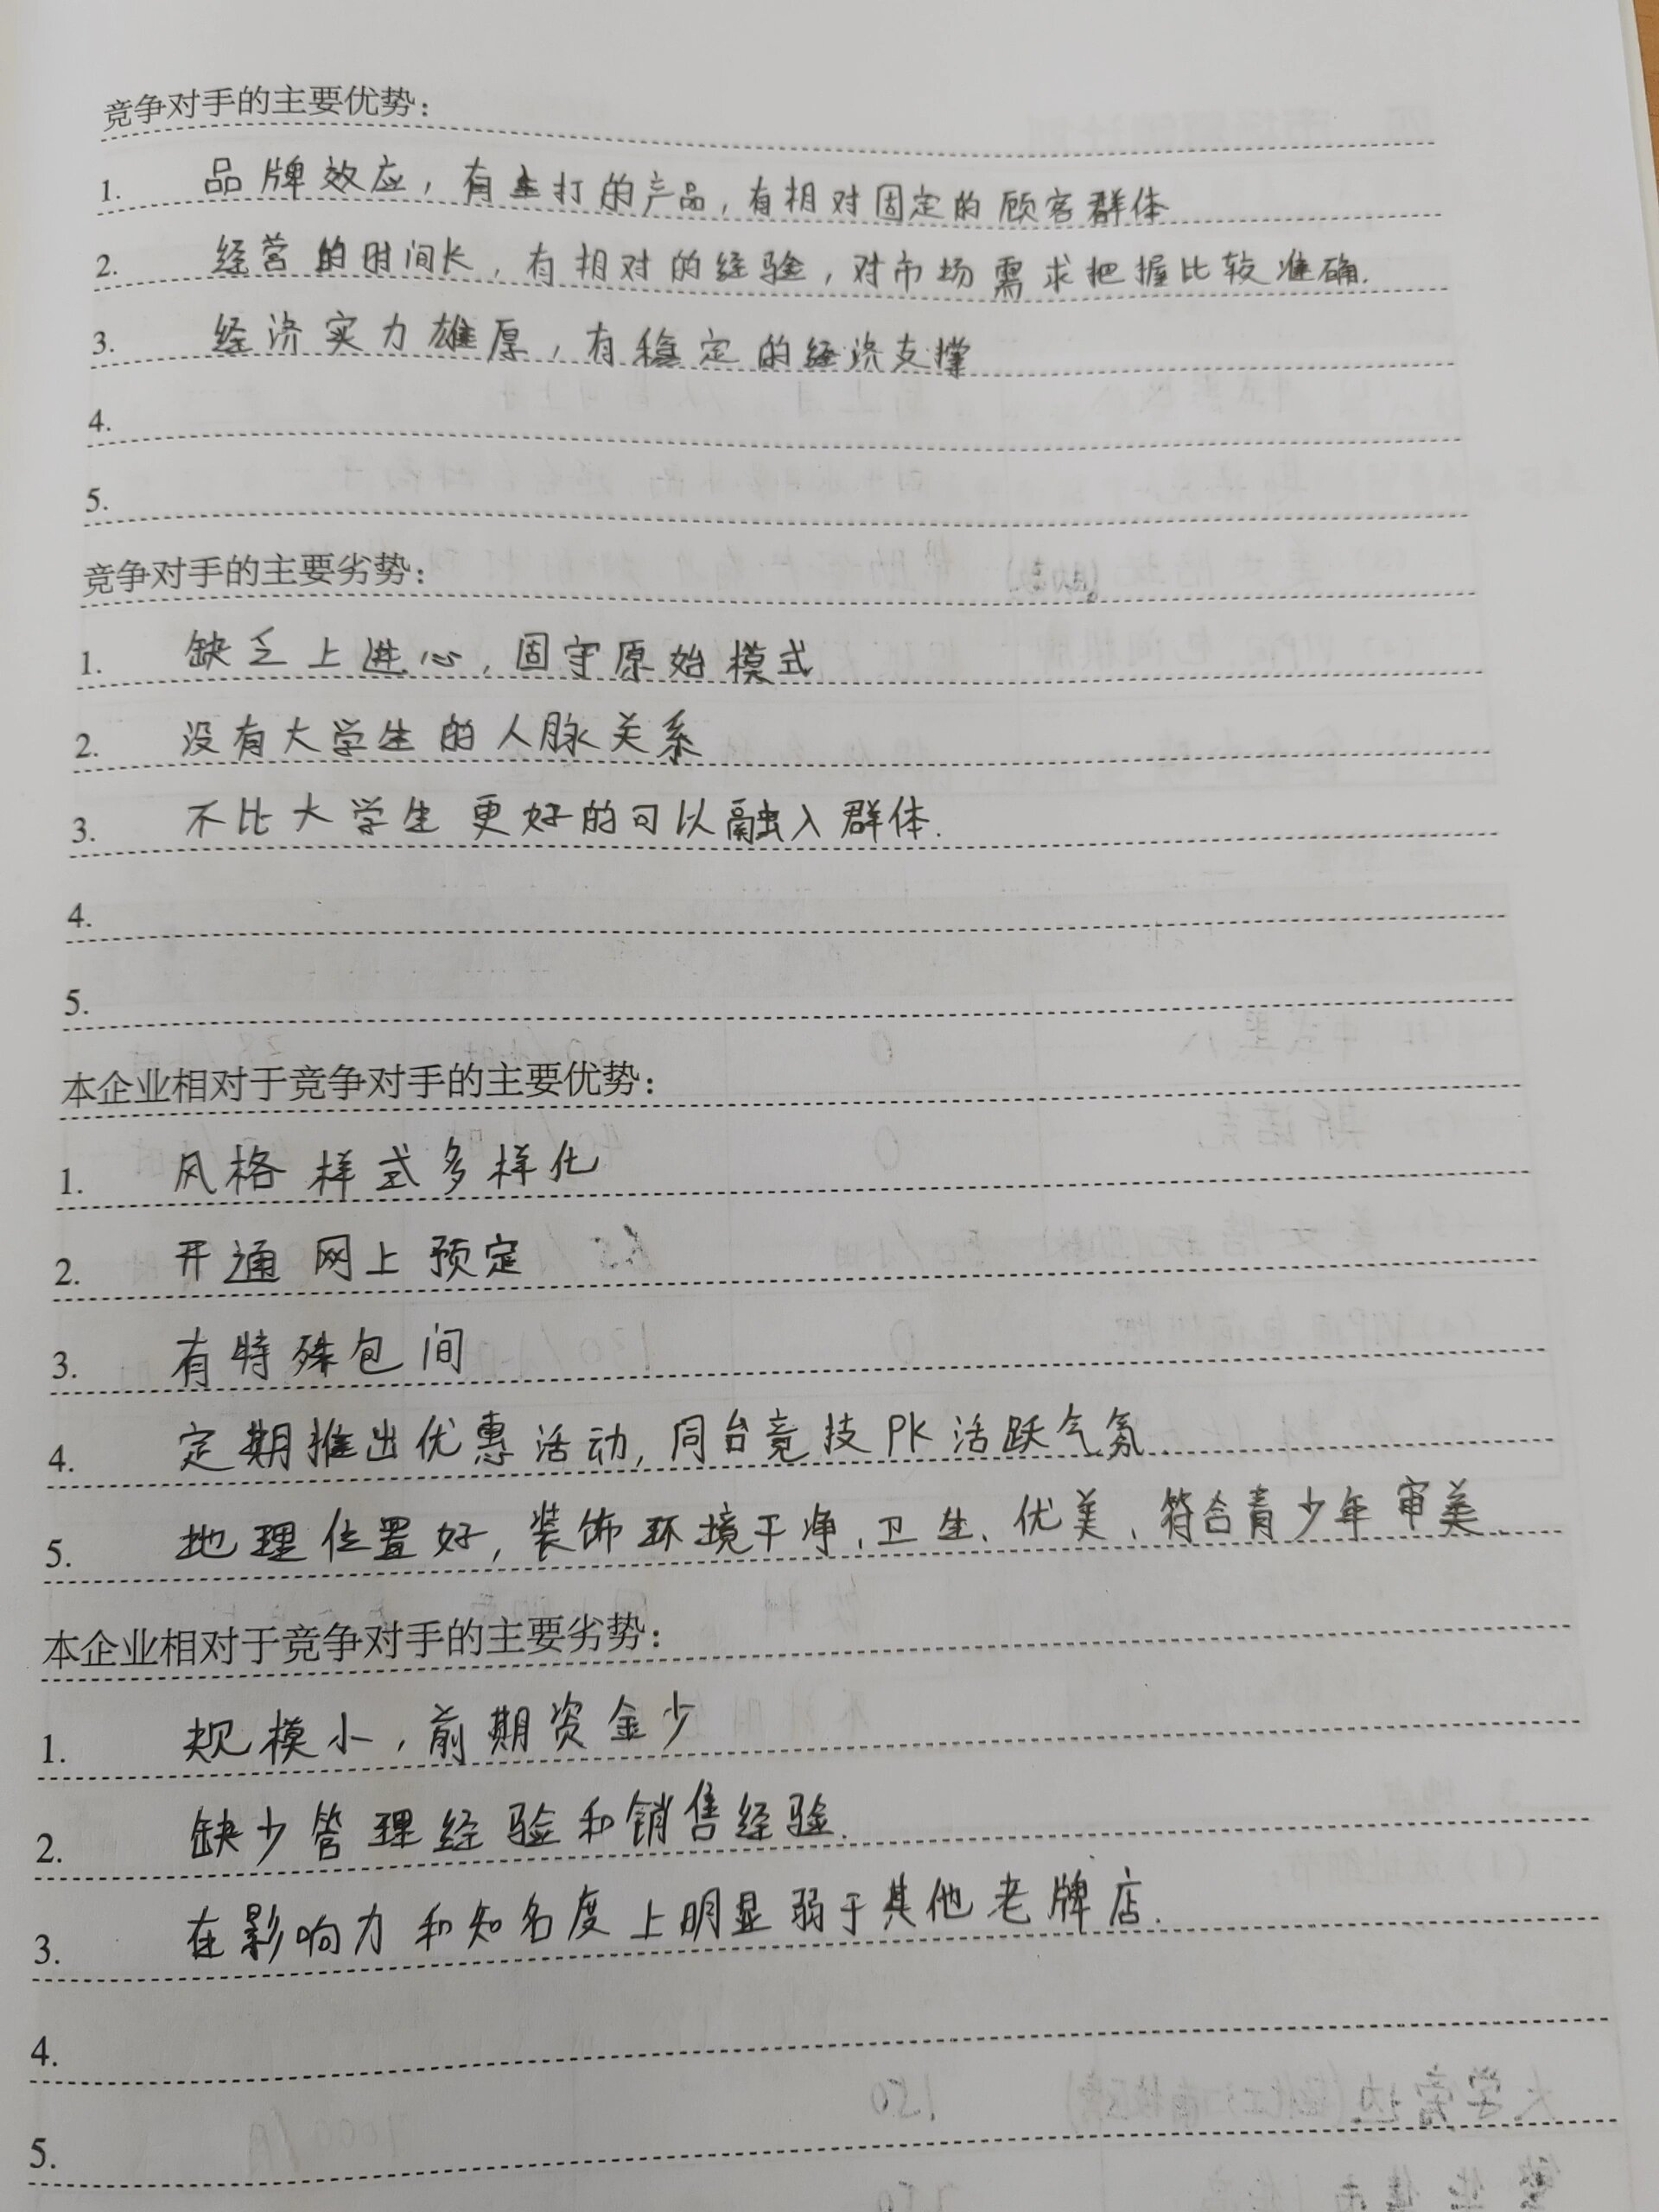 竞争对手的主要优势：
1. 品牌效应，有主打的产品，有相对固定的顾客群体
2. 经营的时间长，有相对的经验，对市场需求把握比较准确.
3. 经济实力雄厚，有稳定的经济支撑
4.
5.
竞争对手的主要劣势：
1. 缺乏上进心，固守原始模式
2. 没有大学生的人脉关系
3. 不比大学生更好的可以融入群体.
4.
5.
本企业相对于竞争对手的主要优势：
1. 风格样式多样化
2. 开通网上预定
3. 有特殊包间
4. 定期推出优惠活动，同台竞技PK活跃气氛.
5. 地理位置好，装饰环境干净、卫生、优美、符合青少年审美.
本企业相对于竞争对手的主要劣势：
1. 规模小，前期资金少
2. 缺少管理经验和销售经验.
3. 在影响力和知名度上明显弱于其他老牌店.
4.
5.